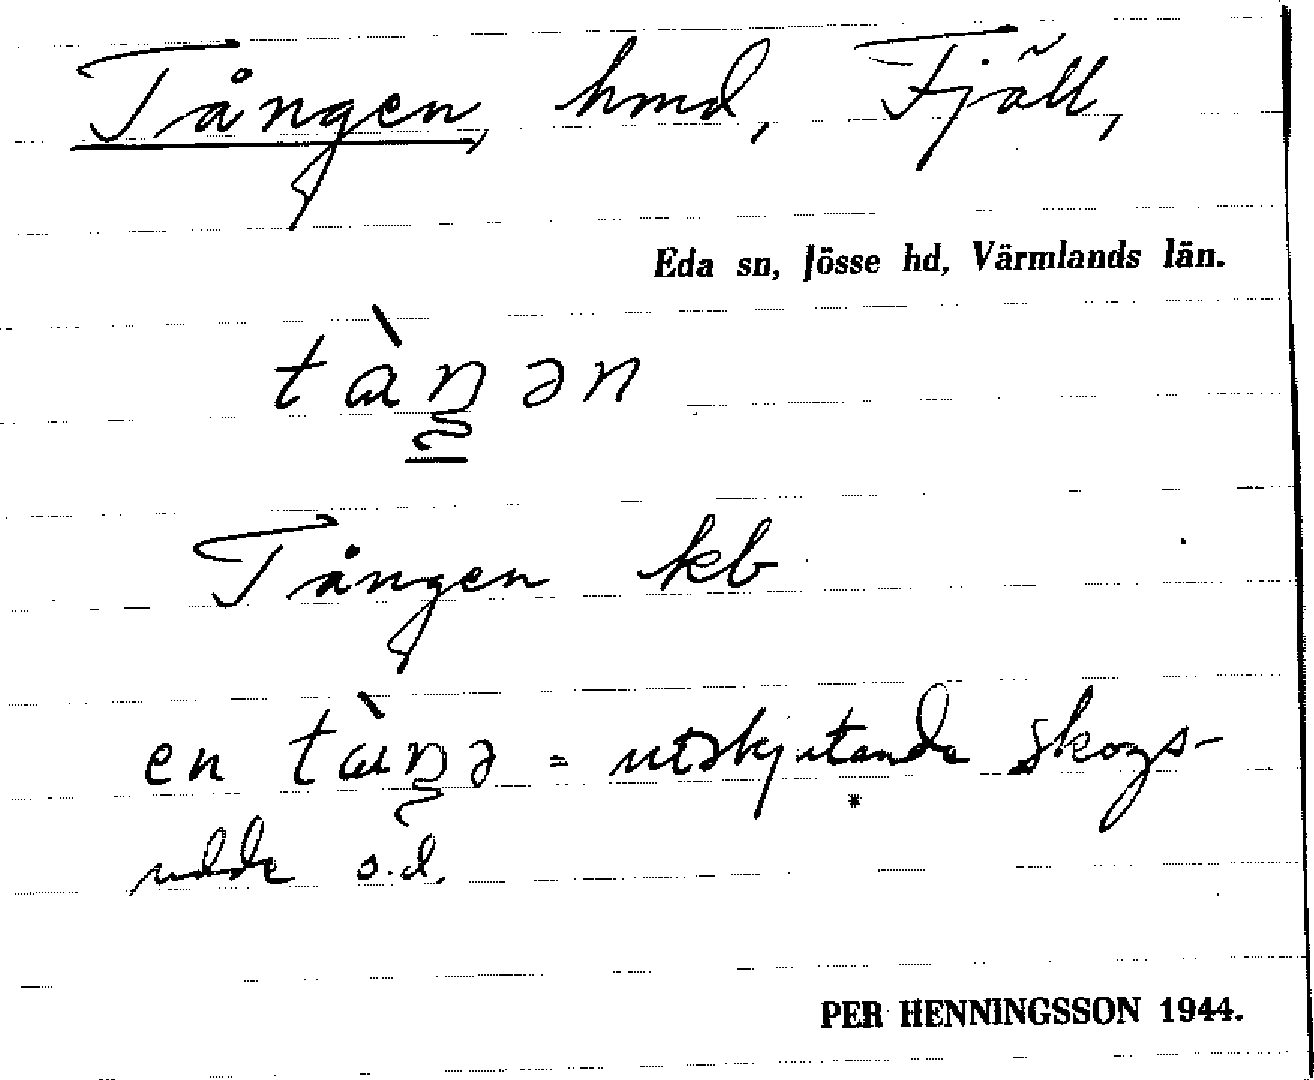 Tången, hmd, Fjäll,
Eda sn, Jösse hd, Värmlands län.
tàŋən
Tången kb
en tàŋə = utskjutande skogs-
udde o.d.
PER HENNINGSSON 1944.